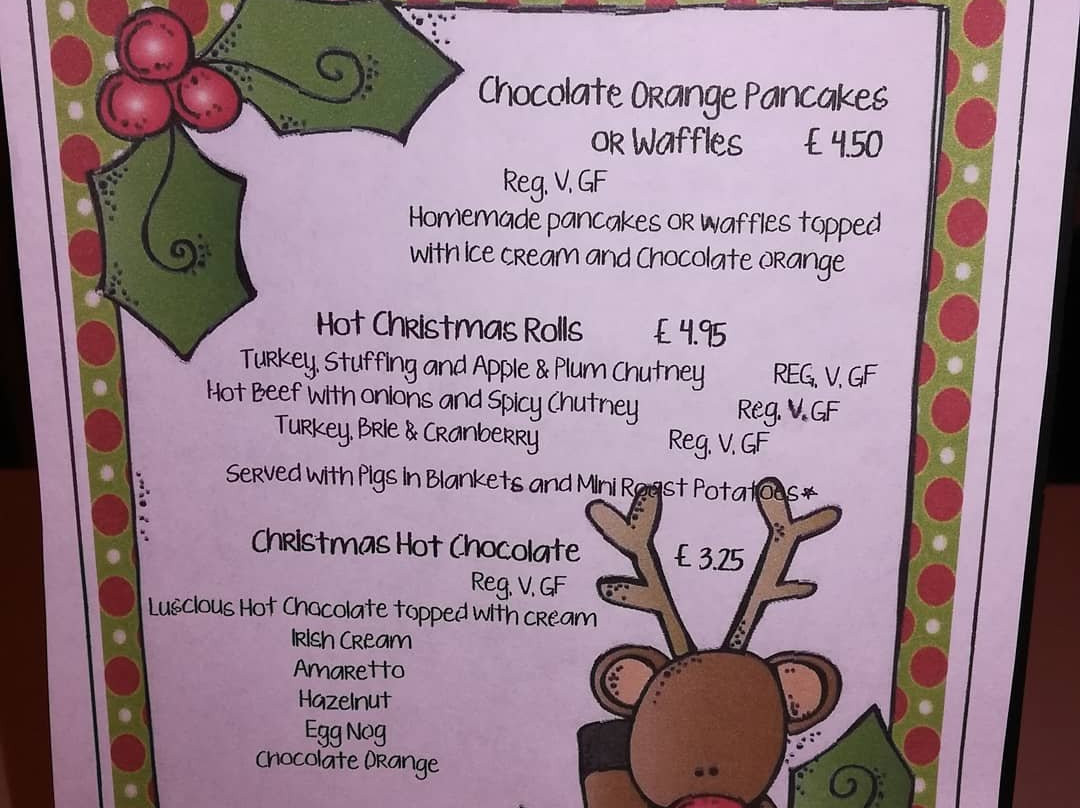 Chocolate Orange Pancakes
or Waffles £ 4.50
Reg, V, GF
Homemade pancakes or waffles topped
with Ice cream and Chocolate orange
Hot Christmas Rolls £ 4.95
Turkey, Stuffing and Apple & Plum Chutney REG, V, GF
Hot Beef with onions and Spicy Chutney Reg, V, GF
Turkey, Brie & Cranberry Reg, V, GF
Served with Pigs in Blankets and Mini Roast Potatoes*
Christmas Hot Chocolate £ 3.25
Reg, V, GF
Luscious Hot Chocolate topped with cream
Irish Cream
Amaretto
Hazelnut
Egg Nog
Chocolate Orange